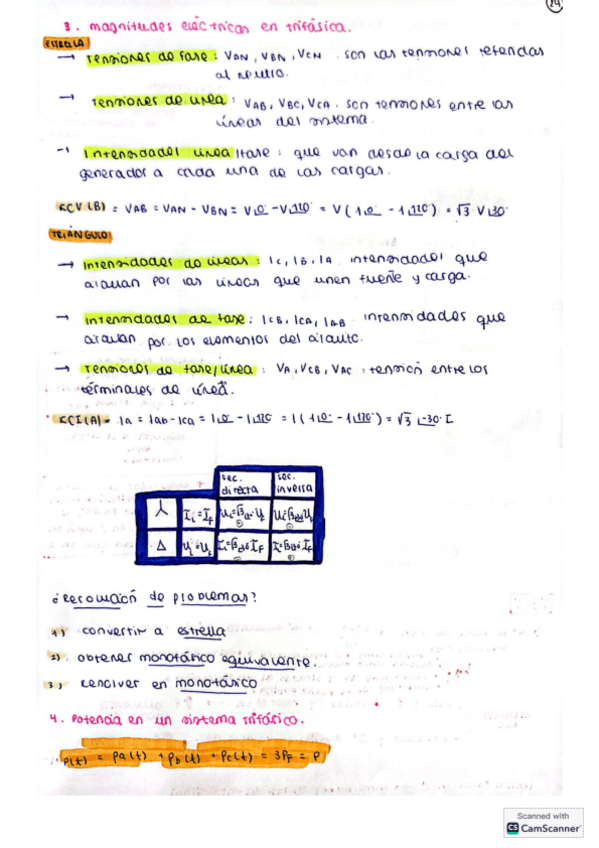 3. magnitudes eléctricas en trifásica.
ESTRELLA
→ Tensiones de fase: VAN, VBN, VCN. son las tensiones referidas
al neutro.
→ Tensiones de línea: VAB, VBC, VCA. son tensiones entre las
líneas del sistema.
→ Intensidades línea/fase: que van desde la carga del
generador a cada una de las cargas.
KCV(B) = VAB = VAN - VBN = V∟0° - V∟120° = V(1∟0° - 1∟120°) = √3 V∟30°
TRIÁNGULO
→ Intensidades de líneas: IC, IB, IA. intensidades que
circulan por las líneas que unen fuente y carga.
→ intensidades de fase: ICB, ICA, IAB. intensidades que
circulan por los elementos del circuito.
→ Tensiones de fase/línea: VA, VCB, VAC: tensión entre los
términales de línea.
KCI(A) = Ia = Iab - Ica = I∟0° - I∟120° = I(1∟0° - 1∟120°) = √3 ∟-30° I
sec. directa sec. inversa
Ii=If
Δ Ui=Ui
¿Resolución de problemas?
1) convertir a estrella
2) obtener monofásico equivalente.
3) resolver en monofásico
4. Potencia en un sistema trifásico.
P(t) = Pa(t) + Pb(t) + Pc(t) = 3PF = P
Scanned with
CS CamScanner